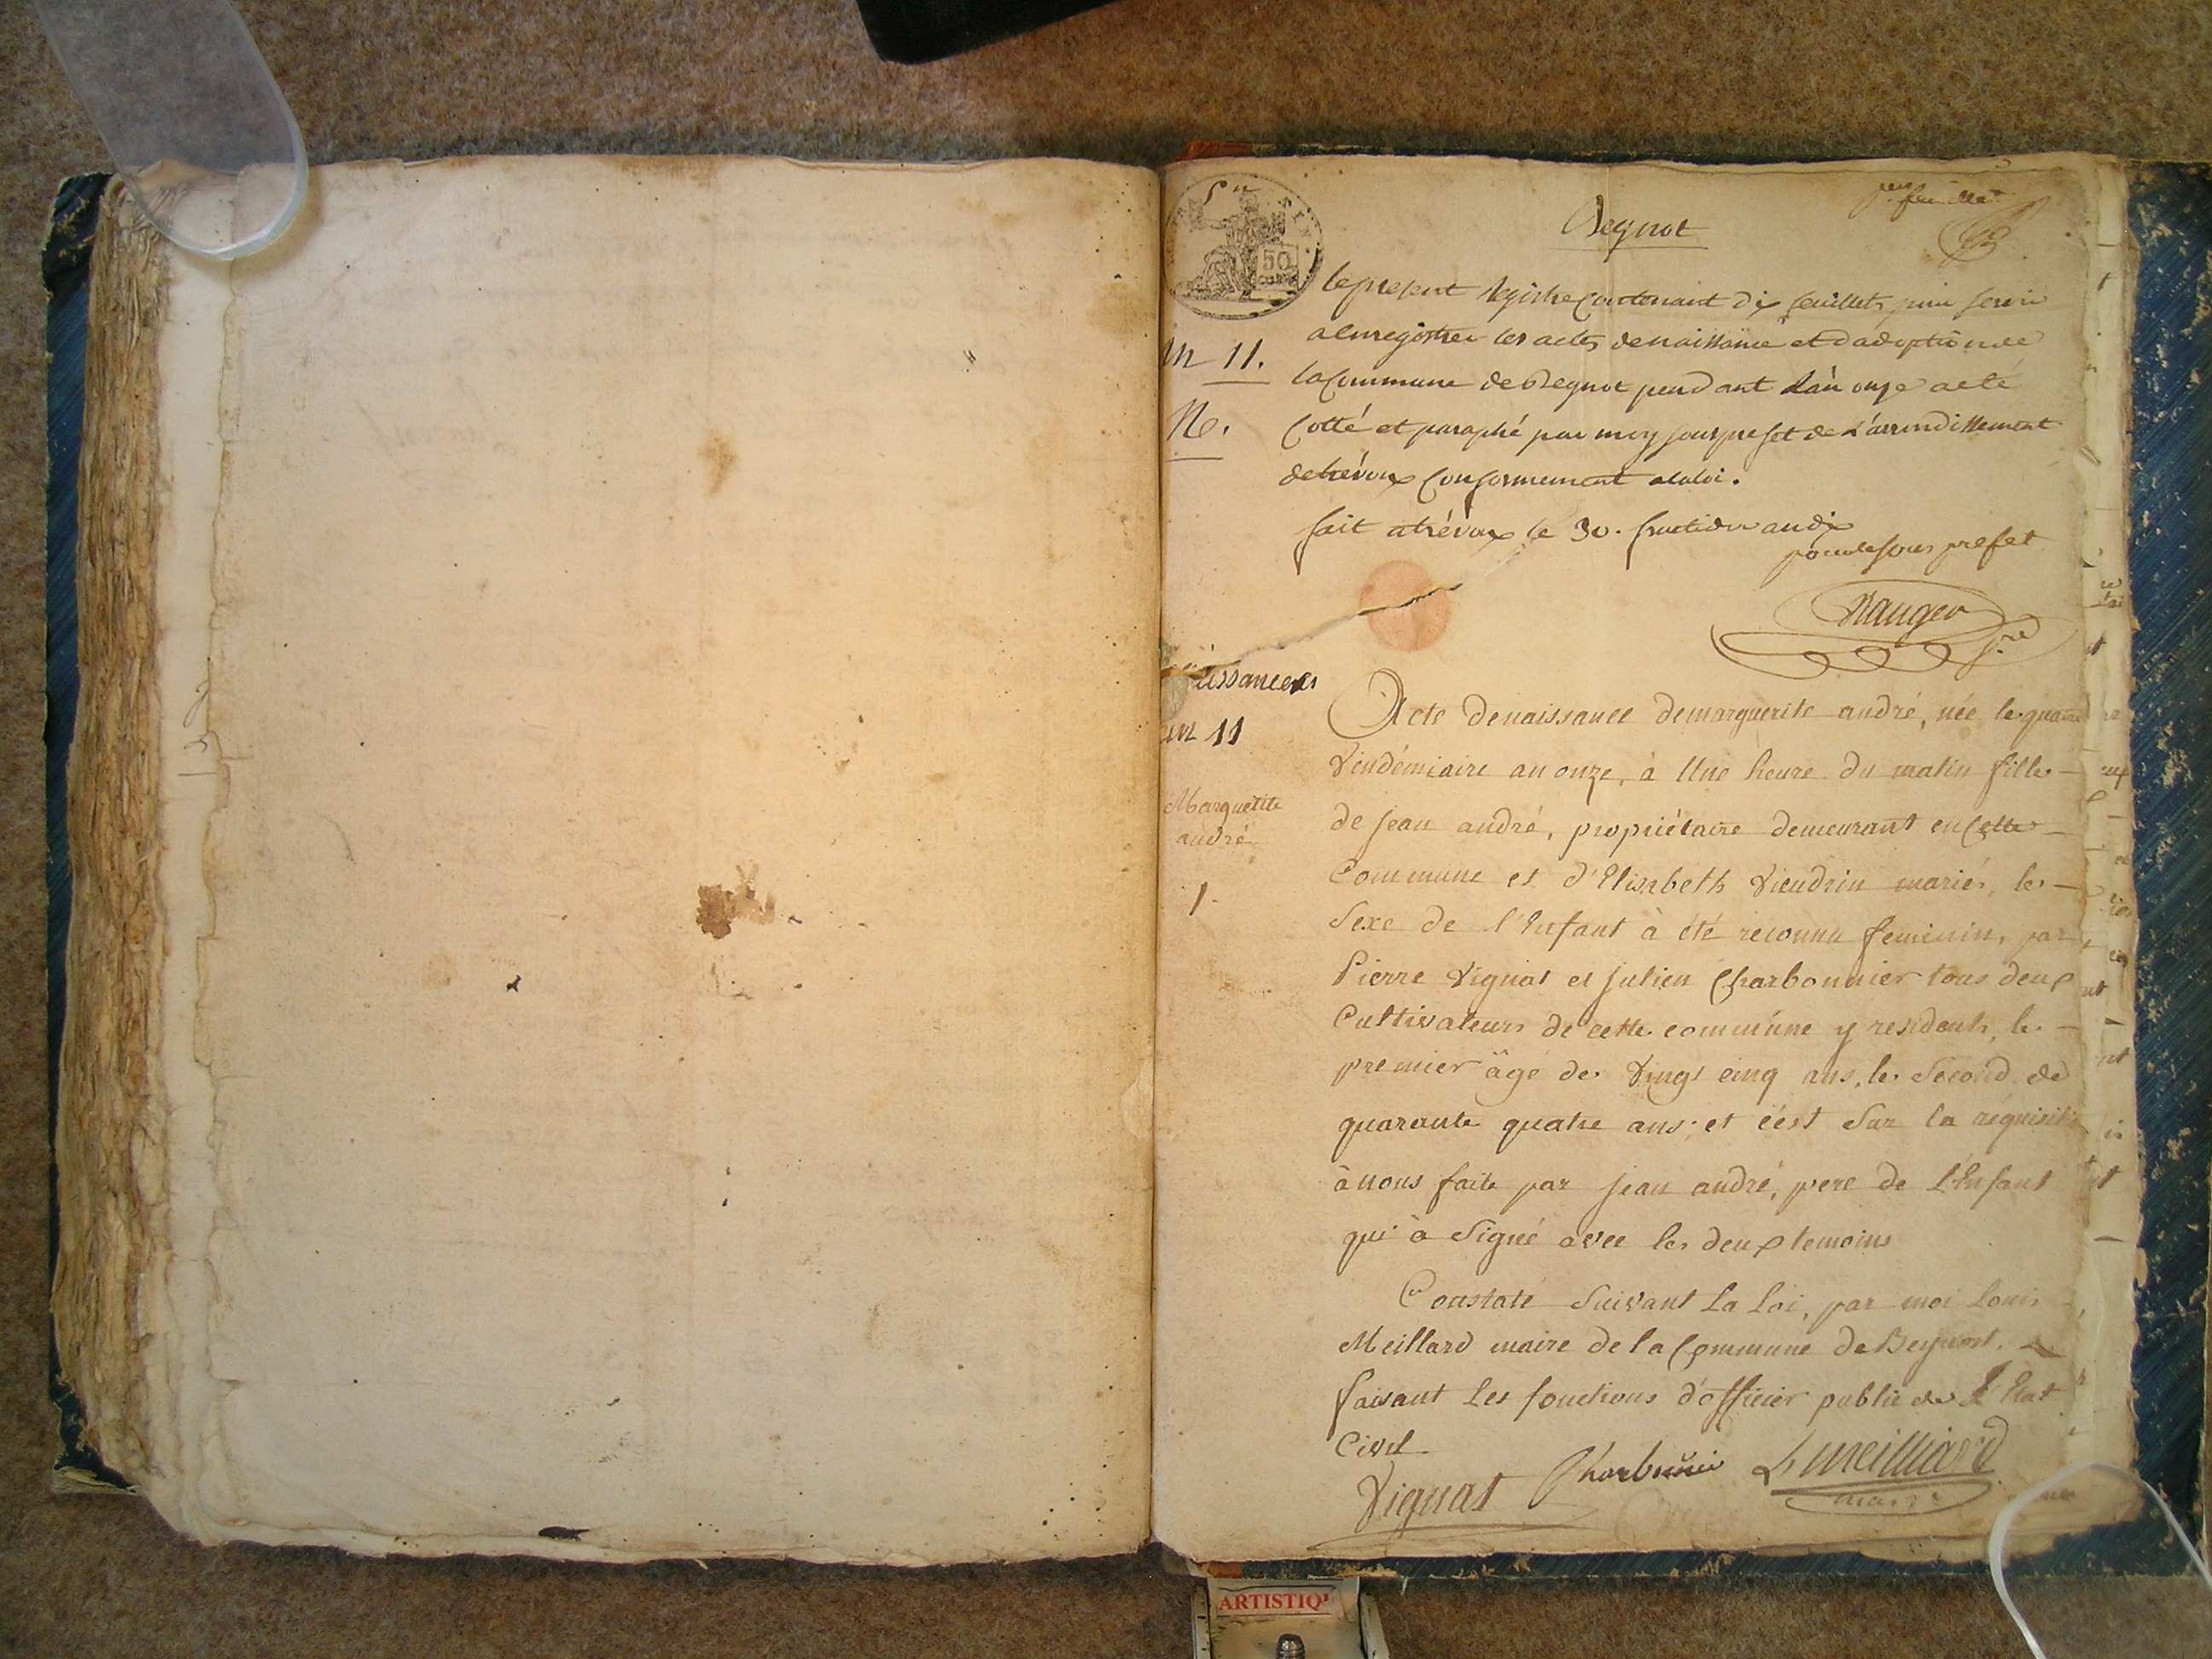 1er feuillet
Beynot
50
Le present registre Contenant dix feuillets pour servir
a enregistrer les actes de naissance et dadoption de
la Commune de Beynot pendant l'an onze a eté
Cotté et paraphé par moy sousprefet de L'arrondissement
de trévoux Conformement a la loi.
fait a trévoux le 30. fructidor an dix
pour le sous prefet
an 11.
N.
aissances
an 11
Marguerite
andré
1.
Acte de naissance de marguerite andré, née le quatre
Vendémiaire an onze, à Une heure du matin fille
de jean andré, propriétaire demeurant en Cette
Commune et d'Elisabeth Vieudrin mariés, le
Sexe de l'Enfant à été reconnu feminin, par
Pierre Vignat et julien Charbonnier tous deux
Cultivateurs de cette commune y residents, le
premier âgé de Vingt cinq ans, le Second de
quarante quatre ans; et c'est Sur la réquisition
à nous faite par jean andré, pere de L'Enfant
qui à Signé avec les deux temoins
Constaté Suivant La Loi, par moi Louis
Meillard maire de la Commune de Beynost.
faisant Les fonctions d'officier public de L'Etat
Civil
Vignat Charbonnier L meilliard
maire
ARTISTIQ